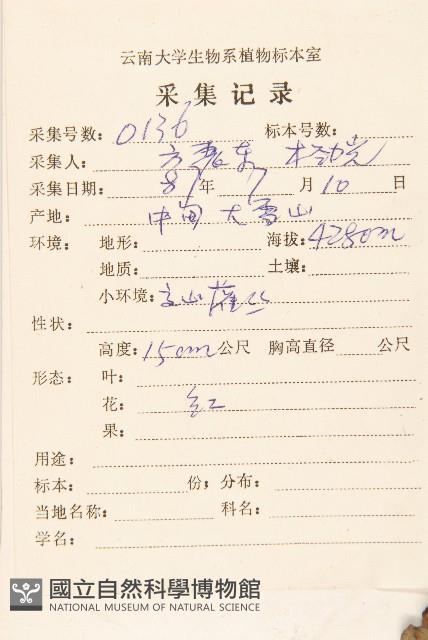 云南大学生物系植物标本室
采集记录
采集号数：0136 标本号数：
采集人：方震东
采集日期：87年 7月10日
产地：中甸大雪山
环境：地形： 海拔：4280m
地质： 土壤：
小环境：高山灌丛
性状：
高度：150m公尺 胸高直径 公尺
形态：叶：
花：红
果：
用途：
标本： 份；分布：
当地名称： 科名：
学名：
國立自然科學博物館
NATIONAL MUSEUM OF NATURAL SCIENCE